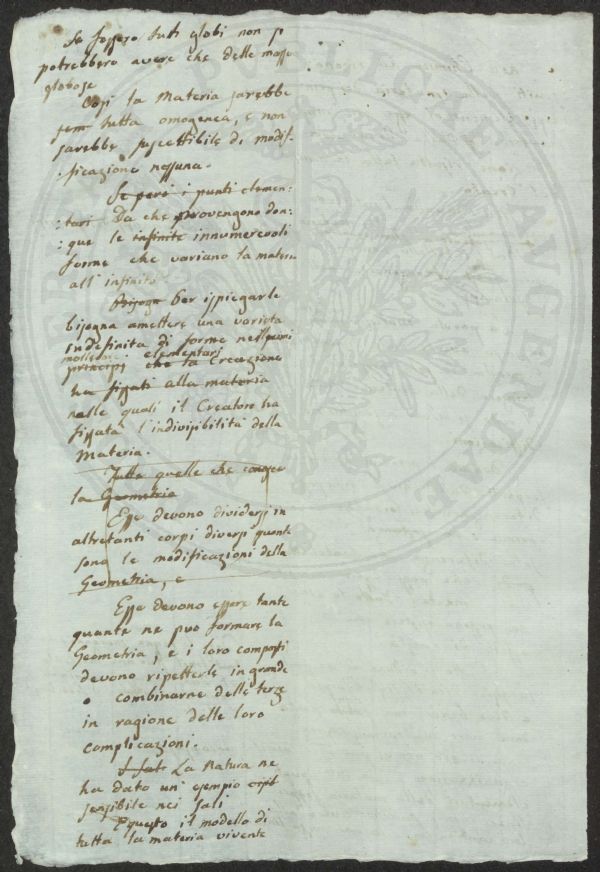 Se fossero tuti globi non si
potrebbero avere che delle masse
globose
Così la Materia sarebbe
sem tutta omogenea, e non
sarebbe suscettibile di modif-
ficazione nessuna.
Se però i punti elemen-
tari Da che provengono don-
que le infinite innumerevoli
forme che variano la materia
all' infinito
Bisogna Per ispiegarle
bisogna amettere una varieta
indefinita di forme nelle
molecole elementari
principj che la Creazione
ha fissati alla materia
nelle quali il Creatore ha
fissata l'indivisibilità della
Materia.
Tutte quelle che
la Geometria
Esse devono dividersi in
altretanti corpi diversi quante
sono le modificazioni della
Geometria, e
Esse devono essere tante
quante ne può formare la
Geometria, e i loro composti
devono ripetterle in grande
o combinarne delle terze
in ragione delle loro
complicazioni.
La Natura ne
ha dato un' esempio
sensibile nei sali
E questo il modello di
tutta la materia vivente